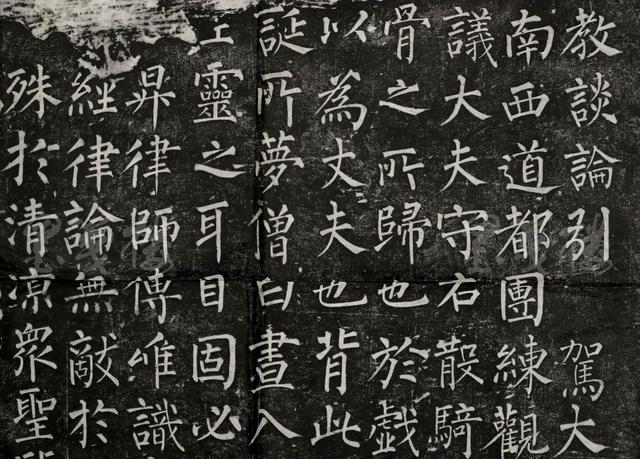 教談論引 駕大
南西道都團練觀
議大夫守右散騎
骨之所歸也於戲
以為丈夫也背此
誕所夢僧白晝入
靈之耳目固必
昇律師傳唯識
經律論無敵於
殊於清涼眾聖